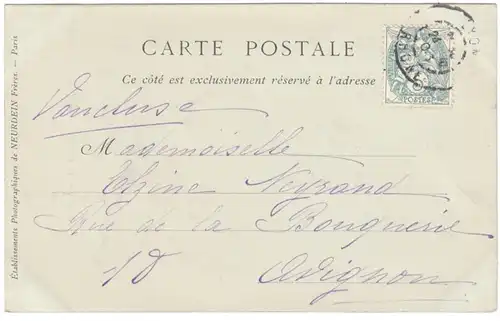 CARTE POSTALE
Ce côté est exclusivement réservé à l'adresse
Vaucluse
Mademoiselle
Elzine Neyrand
Rue de la Bouquerie
18
Avignon
POSTES
Etablissements Photographiques de NEURDEIN Frères. — Paris